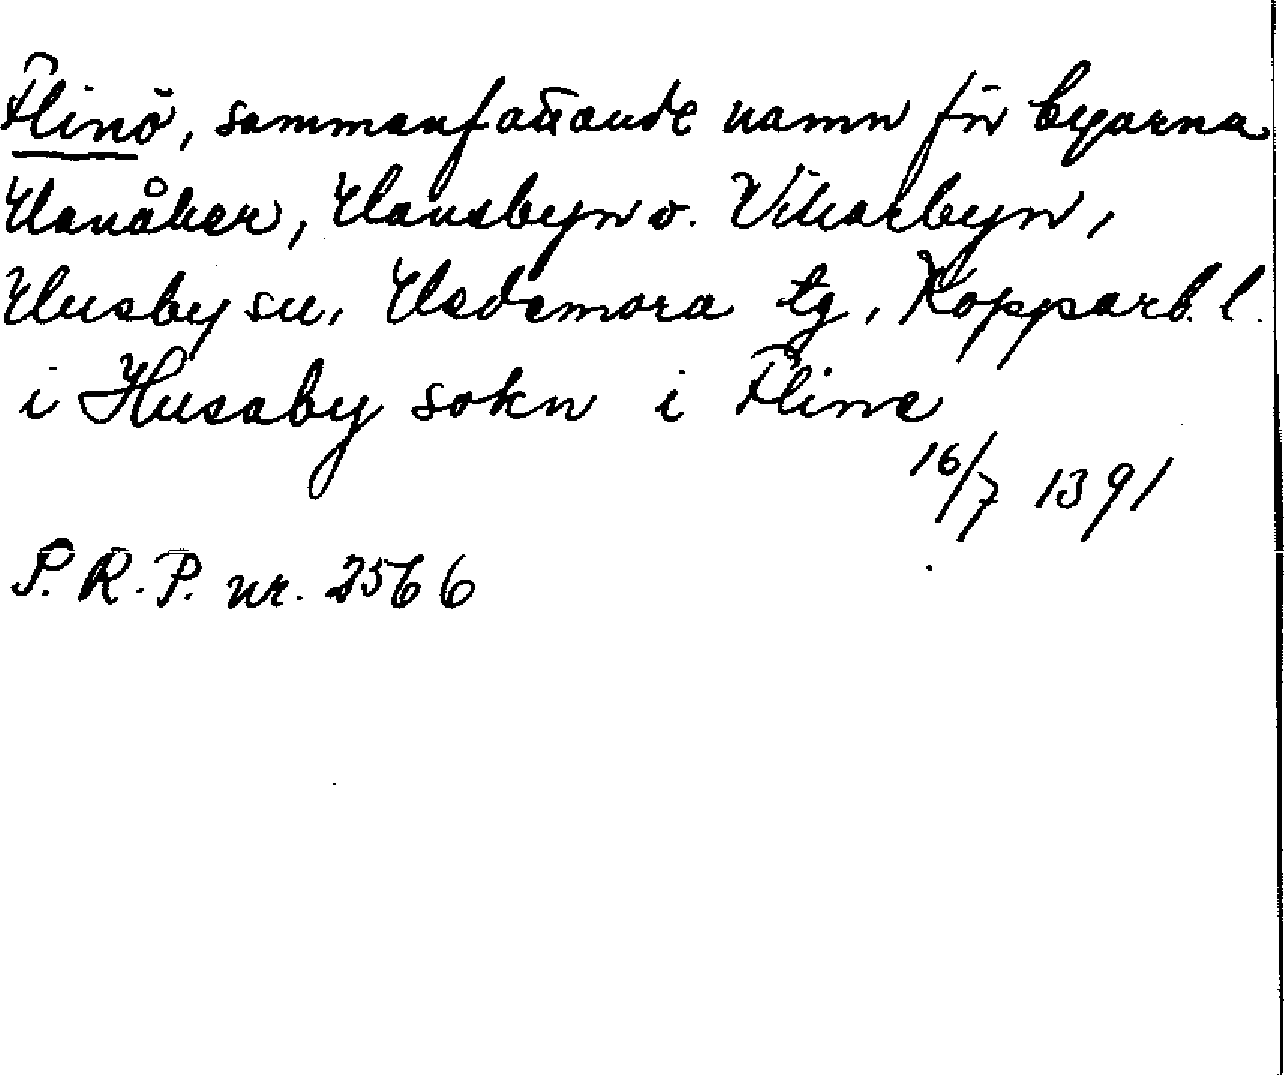 Flinö, sammanfattande namn för byarna
Hanåker, Hansbyn o. Vikarbyn,
Husby sn, Hedemora tg, Kopparb. l.
i Husaby sokn i Fline
16/7 1391
S. R. P. nr. 2566